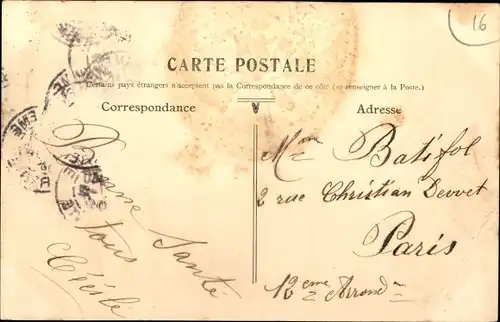 16
CARTE POSTALE
Certains pays étrangers n'acceptent pas la Correspondance de ce côté (se renseigner à la Poste.)
Correspondance
Adresse
Bonne Santé
tous
Cécile
Mme Batifol
2 rue Christian Dewet
Paris
12eme Arrond